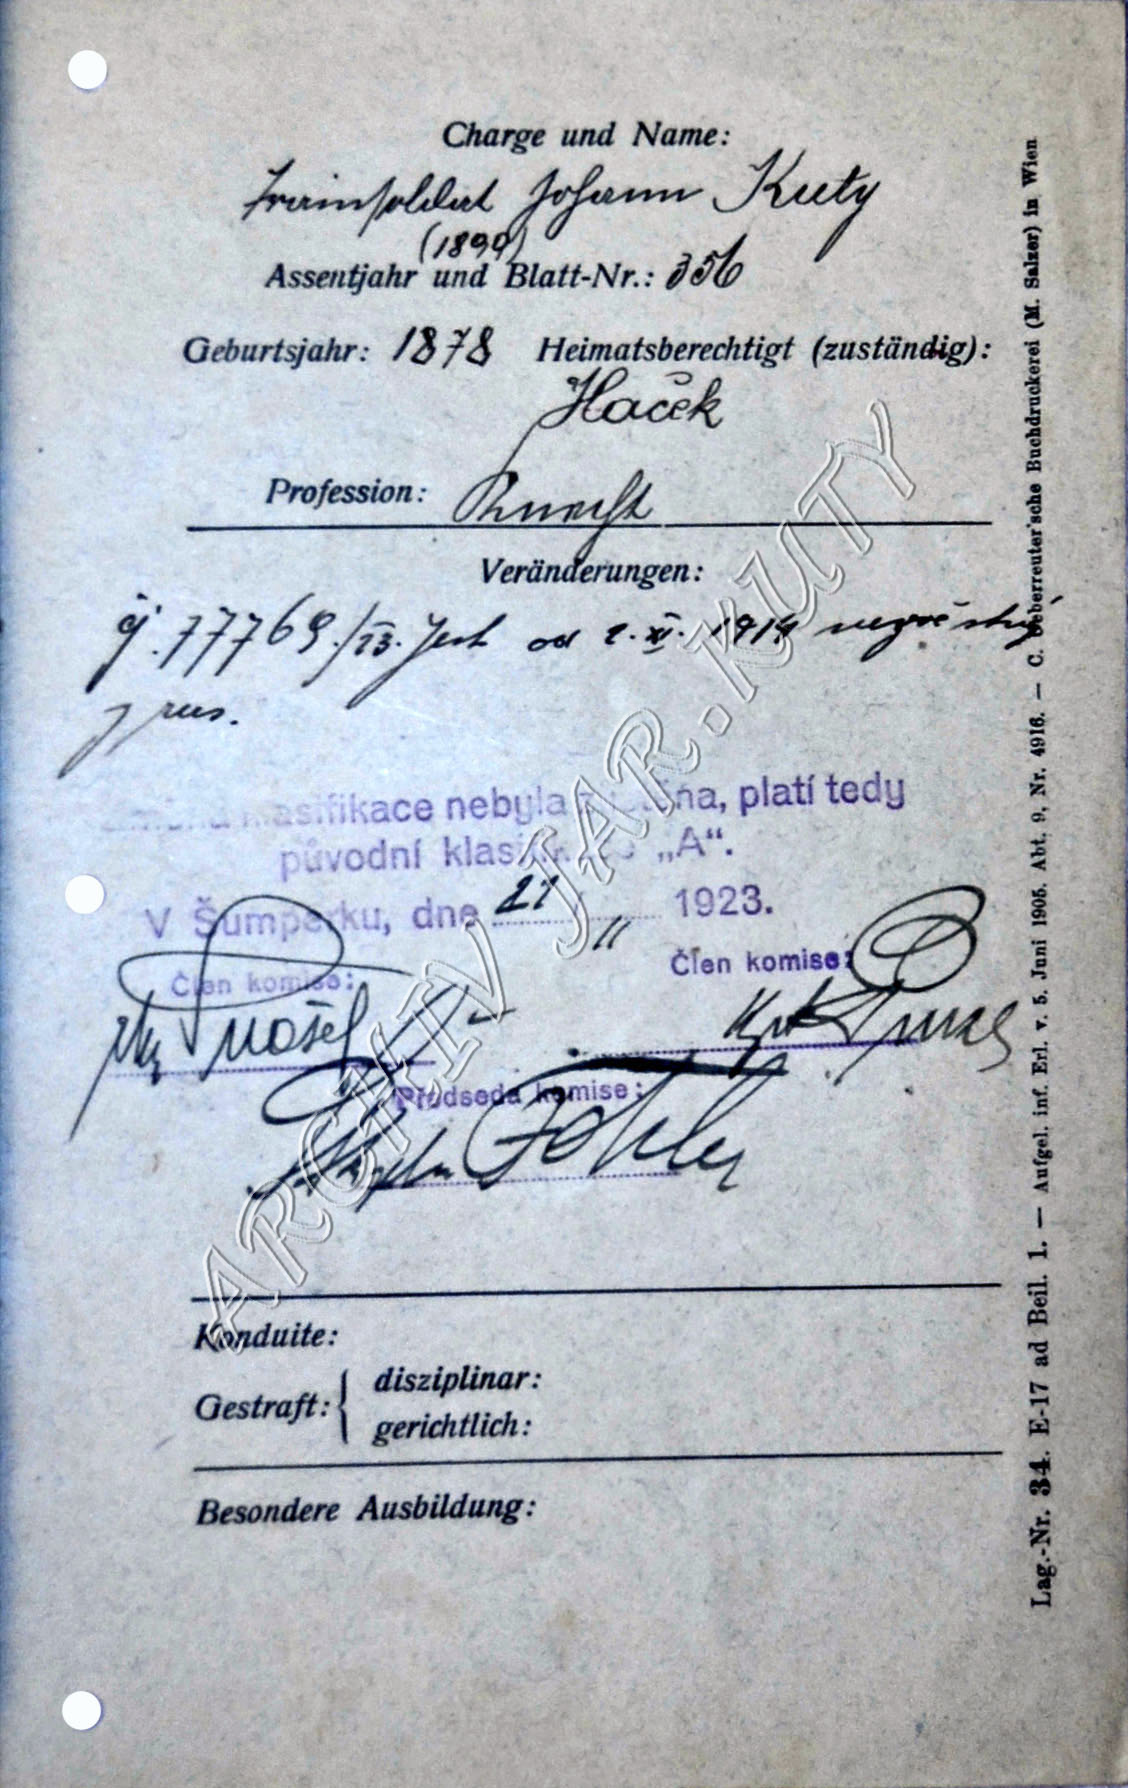 Charge und Name:
Trainsoldat Johann Kuty
(1899)
Assentjahr und Blatt-Nr.: 356
Geburtsjahr: 1878 Heimatsberechtigt (zuständig):
Haček
Profession: Knecht
Veränderungen:
čj. 77769./23. Jest od 2. XI. 1914 nezvěstný
z rus.
klasifikace nebyla platí tedy
původní „A“.
V Šumperku, dne 21/11 1923.
Člen komise: Člen komise:
Předseda komise:
Konduite:
Gestraft: { disziplinar:
gerichtlich:
Besondere Ausbildung:
Lag.-Nr. 34. E-17 ad Beil. 1. — Aufgel. inf. Erl. v. 5. Juni 1905. Abt. 9, Nr. 4916. — C. Ueberreuter'sche Buchdruckerei (M. Salzer) in Wien
ARCHIV JAR. KUTY